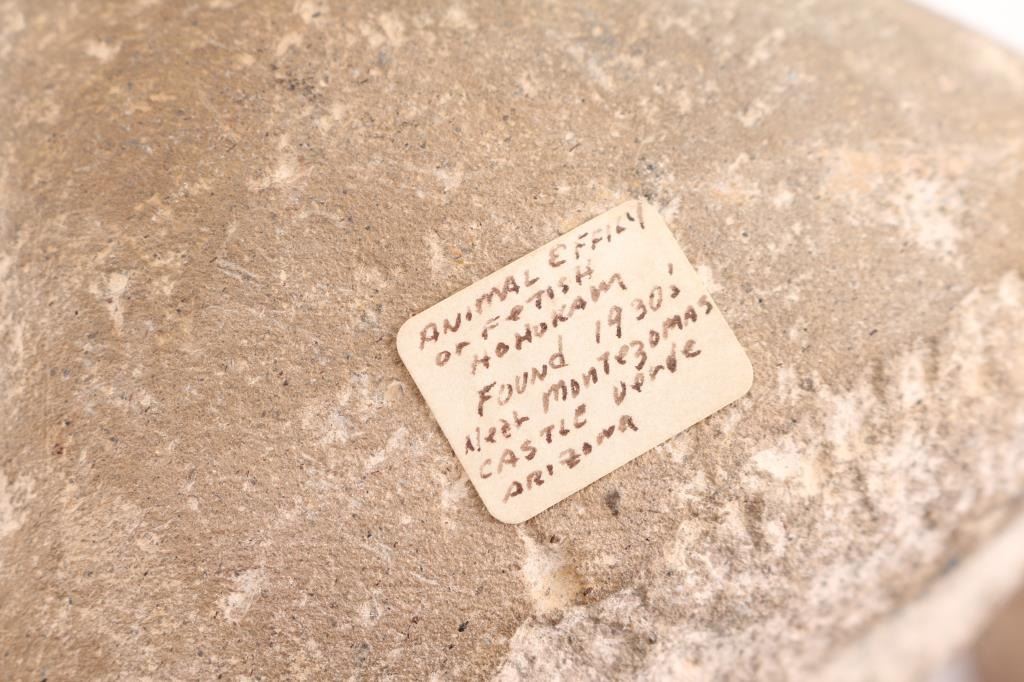 ANIMAL EFFIGY
or FETISH
HOHOKAM
FOUNd 1930s
NeaR MONTEZOMAS
CASTLE Verde
ARIZONA